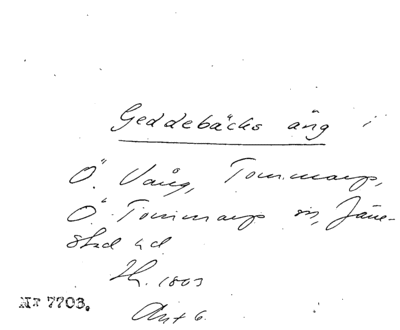 Geddebäcks äng i
Ö. Vång, Tommarp,
Ö. Tommarp sn, Järre-
stad hd
Sk. 1803
Akt 6.
Nr 7703.